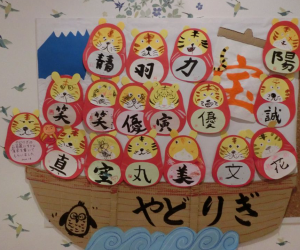 晴 羽 力 陽
宝
笑 笑 優 寅 優 誠
真 空 丸 美 文 花
やどりぎ